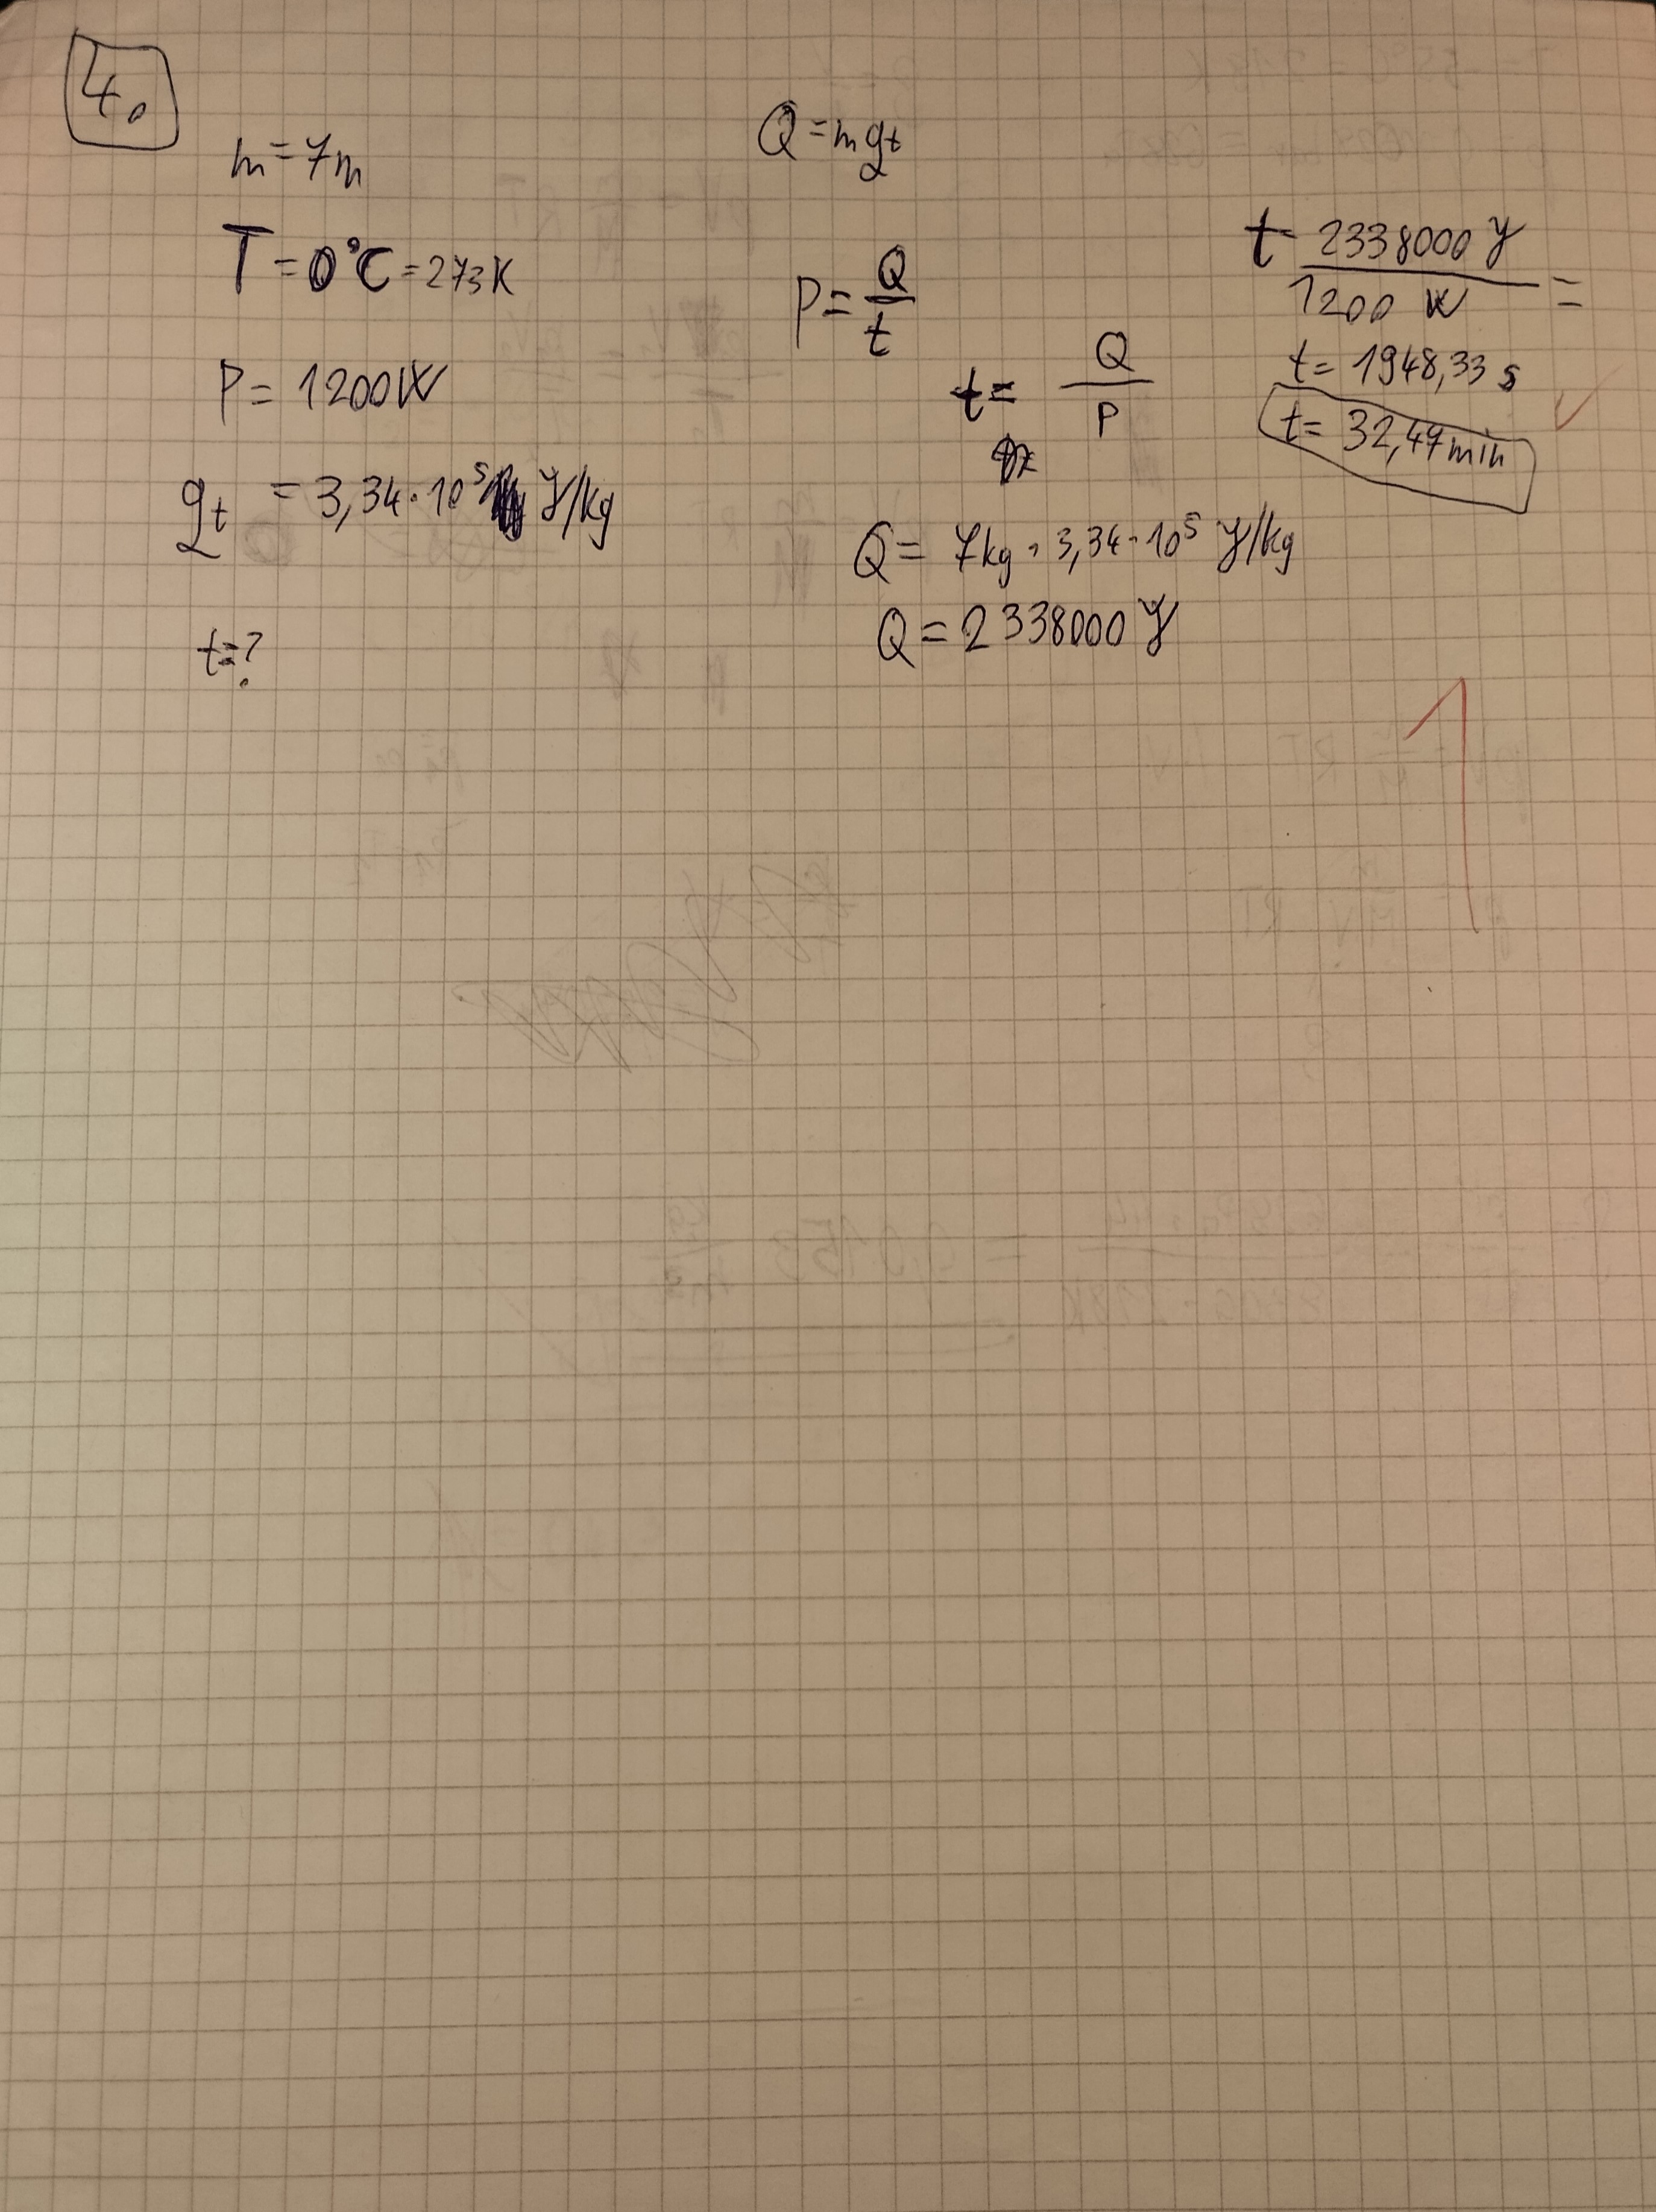 4.
m = 7m
T = 0°C = 273K
P = 1200W
qt = 3,34·10⁵ J/kg
t = ?
Q = mqt
P = Q/t
t = Q/P
Q = 7kg · 3,34·10⁵ J/kg
Q = 2338000 J
t = 2338000 J / 1200 W =
t = 1948,33 s
t = 32,47 min
1